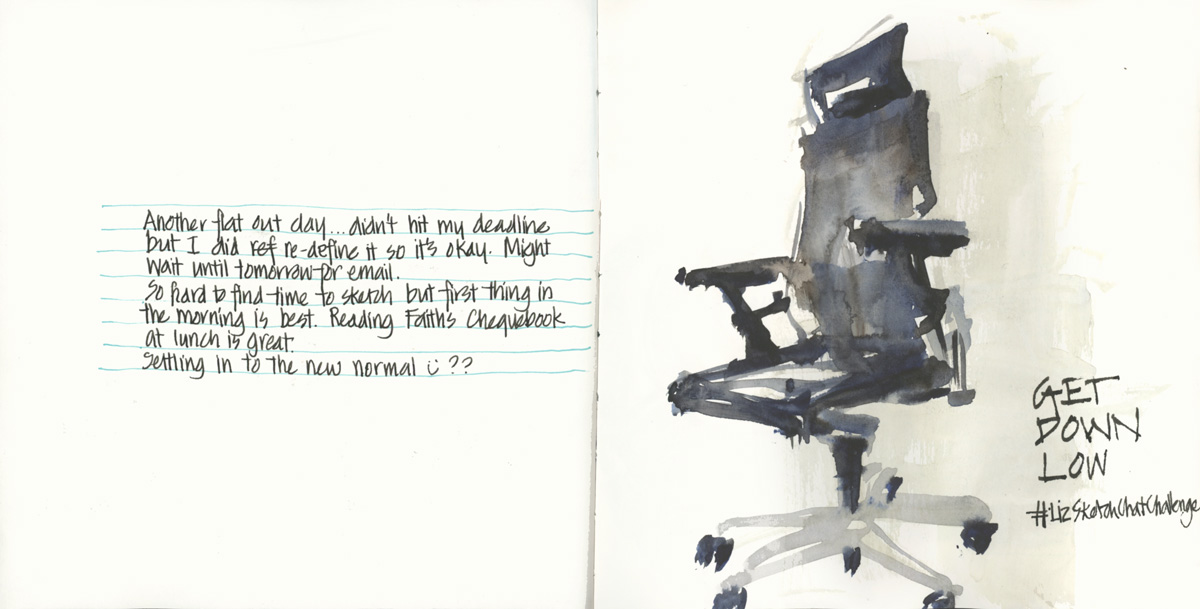 Another flat out day...didn't hit my deadline
but I did ref re-define it so it's okay. Might
wait until tomorrow for email.
So hard to find time to sketch but first thing in
the morning is best. Reading Faith's Chequebook
at lunch is great.
Settling in to the new normal ☺??
GET
DOWN
LOW
#LizSketchChatChallenge